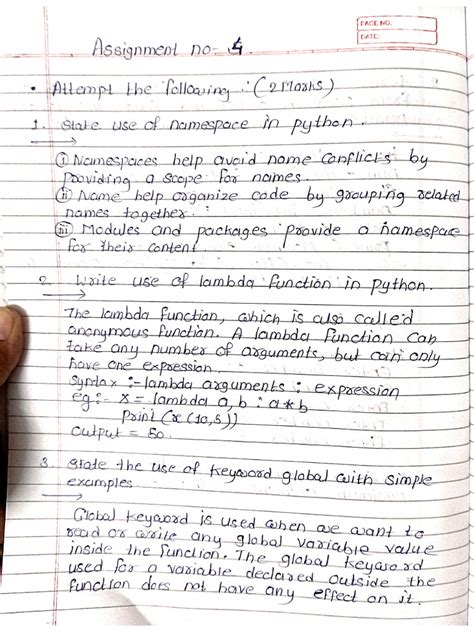 PAGE NO.
DATE:
Assignment no- 4.
• Attempt the following : (2 Marks)
1. State use of namespace in python.
(i) Namespaces help avoid name conflicts by
providing a scope for names.
(ii) Name help organize code by grouping related
names together.
(iii) Modules and packages provide a namespace
for their content
2. Write use of lambda function in python.
The lambda function, which is also called
anonymous function. A lambda function can
take any number of arguments, but can only
have one expression
Syntax :- lambda arguments : expression
eg:- x = lambda a, b : a * b
Print (x (10,5))
Output = 50.
3. State the use of keyword global with simple
examples
Global keyword is used when we want to
read or write any global variable value
inside the function. The global keyword
used for a variable declared outside the
function does not have any effect on it.